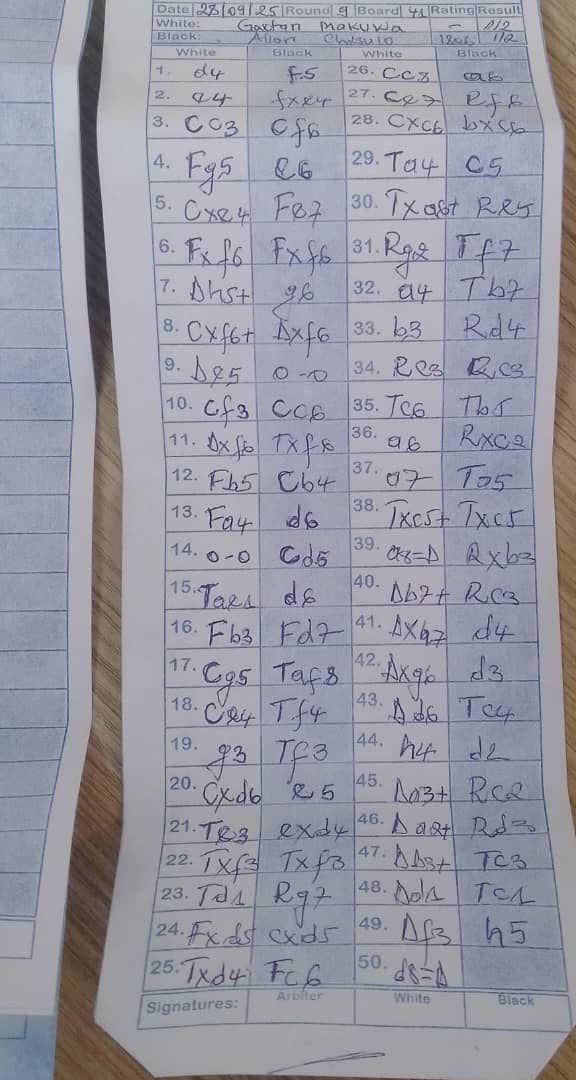 Date 28/09/25 Round 9 Board 41 Rating Result
White: Gaetan Makuwa - 1/2
Black: 1/2
White Black White Black
1. d4 f5 26. Cc3 a6
2. e4 fxe4 27. Ce7 Rf8
3. Cc3 Cf6 28. Cxc6 bxc6
4. Fg5 e6 29. Ta4 c5
5. Cxe4 Fe7 30. Txa6+ Re5
6. Fxf6 Fxf6 31. Rg2 Tf7
7. Dh5+ g6 32. a4 Tb7
8. Cxf6+ Dxf6 33. b3 Rd4
9. De5 0-0 34. Re3 Rc3
10. Cf3 Cc6 35. Tc6 Tb5
11. Dxf6 Txf6 36. a6 Rxc2
12. Fb5 Cb4 37. a7 Ta5
13. Fa4 d6 38. Txc5+ Txc5
14. 0-0 Cd5 39. a8=D Rxb3
15. Tae1 d6 40. Db7+ Rc3
16. Fb3 Fd7 41. Dxh7 d4
17. Cg5 Taf8 42. Dxg6 d3
18. Ce4 Tf4 43. Dd6 Tc4
19. g3 Tf3 44. h4 d2
20. Cxd6 e5 45. Da3+ Rc2
21. Te3 exd4 46. Da2+ Rd3
22. Txf3 Txf3 47. Db3+ Tc3
23. Td1 Rg7 48. Dd1 Tc1
24. Fxd5 cxd5 49. Df3 h5
25. Txd4 Fc6 50. d8=D
Signatures: Arbiter White Black